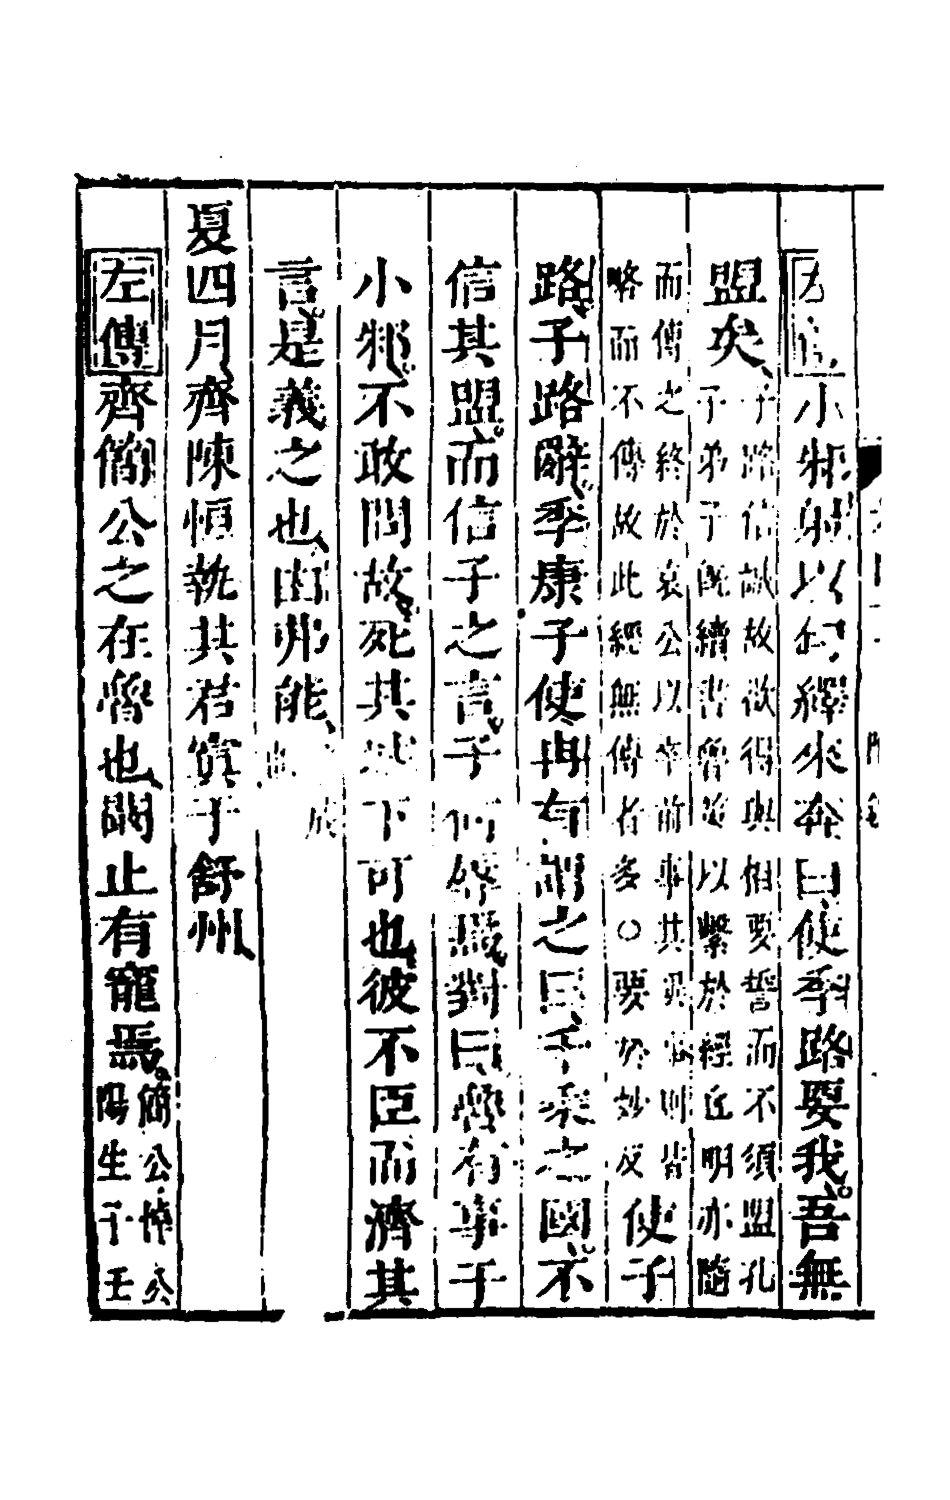 左傳小邾射以句繹來奔曰使季路要我吾無
盟矣子路信誠故欲得與相要誓而不須盟孔
子弟子既續書魯策以繫於經丘明亦隨
而傳之終於哀公以卒前事其異事則皆
略而不傳故此經無傳者多〇要於妙反使子
路子路辭季康子使冉有謂之曰千乘之國不
信其盟而信子之言子何辱焉對曰魯有事于
小邾不敢問故死其城下可也彼不臣而濟其
言是義之也由弗能成
夏四月齊陳恒執其君寘于舒州
左傳齊簡公之在魯也闞止有寵焉簡公悼公
陽生子壬